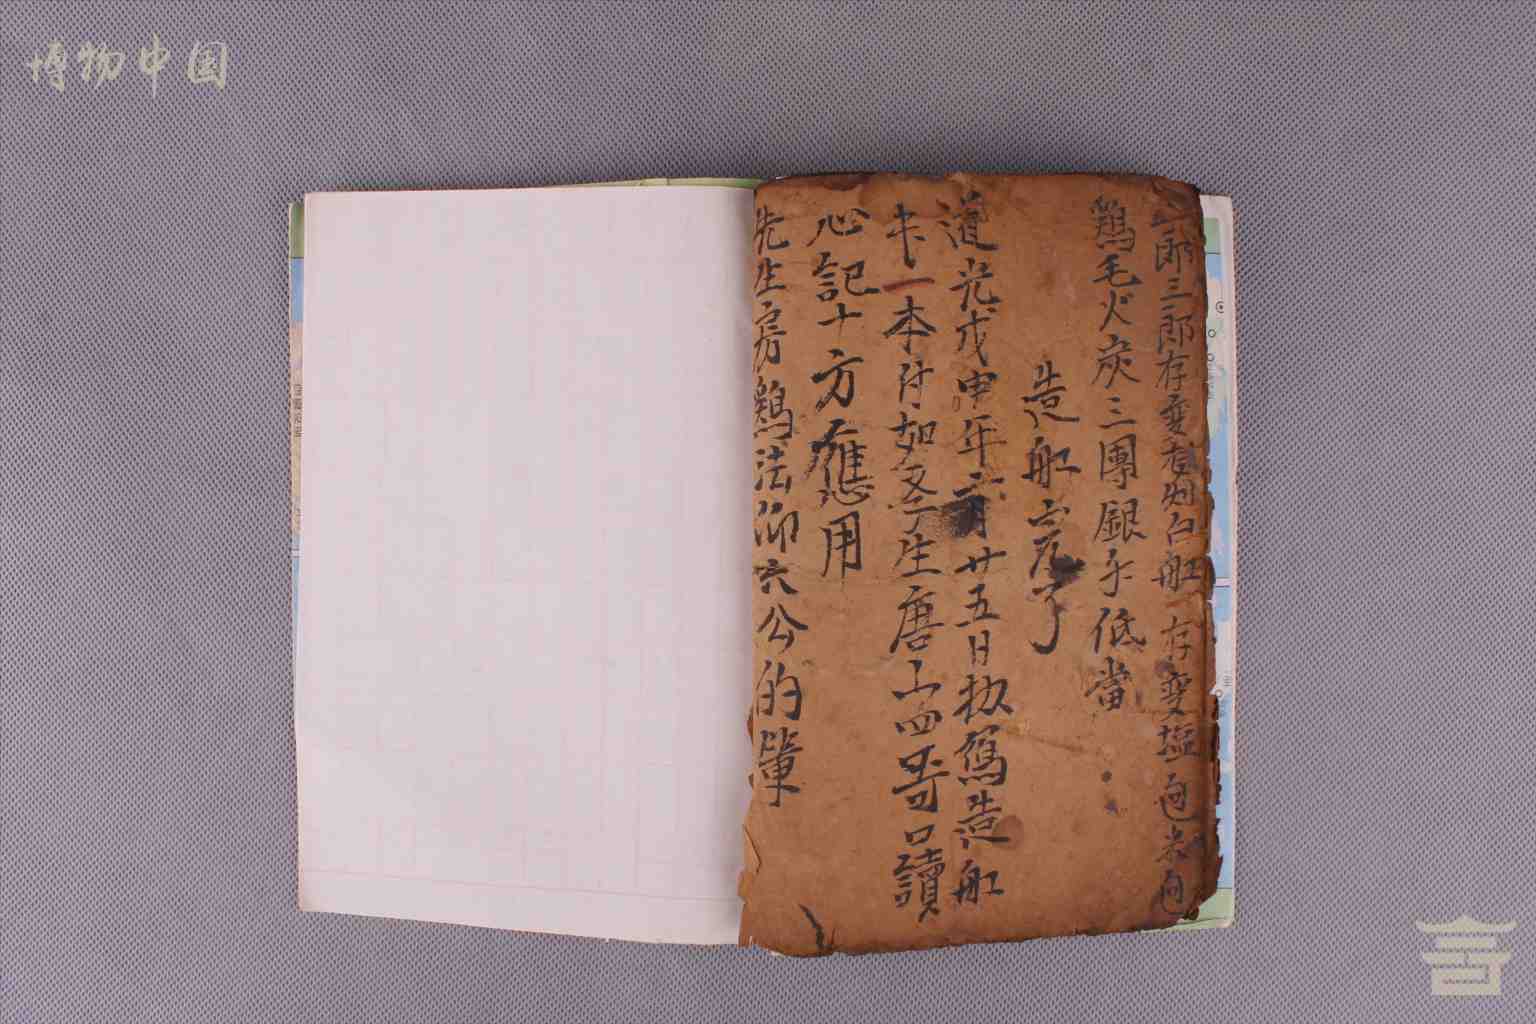 博物中国
郎三郎存變為白船一存變塩包米包
鷄毛火炭三團銀子低當
造船完了
道光戊申年六月廿五日抄寫造船
一本付如季生唐山四哥口讀
心記十方應用
先生房鷄法仰六公的筆